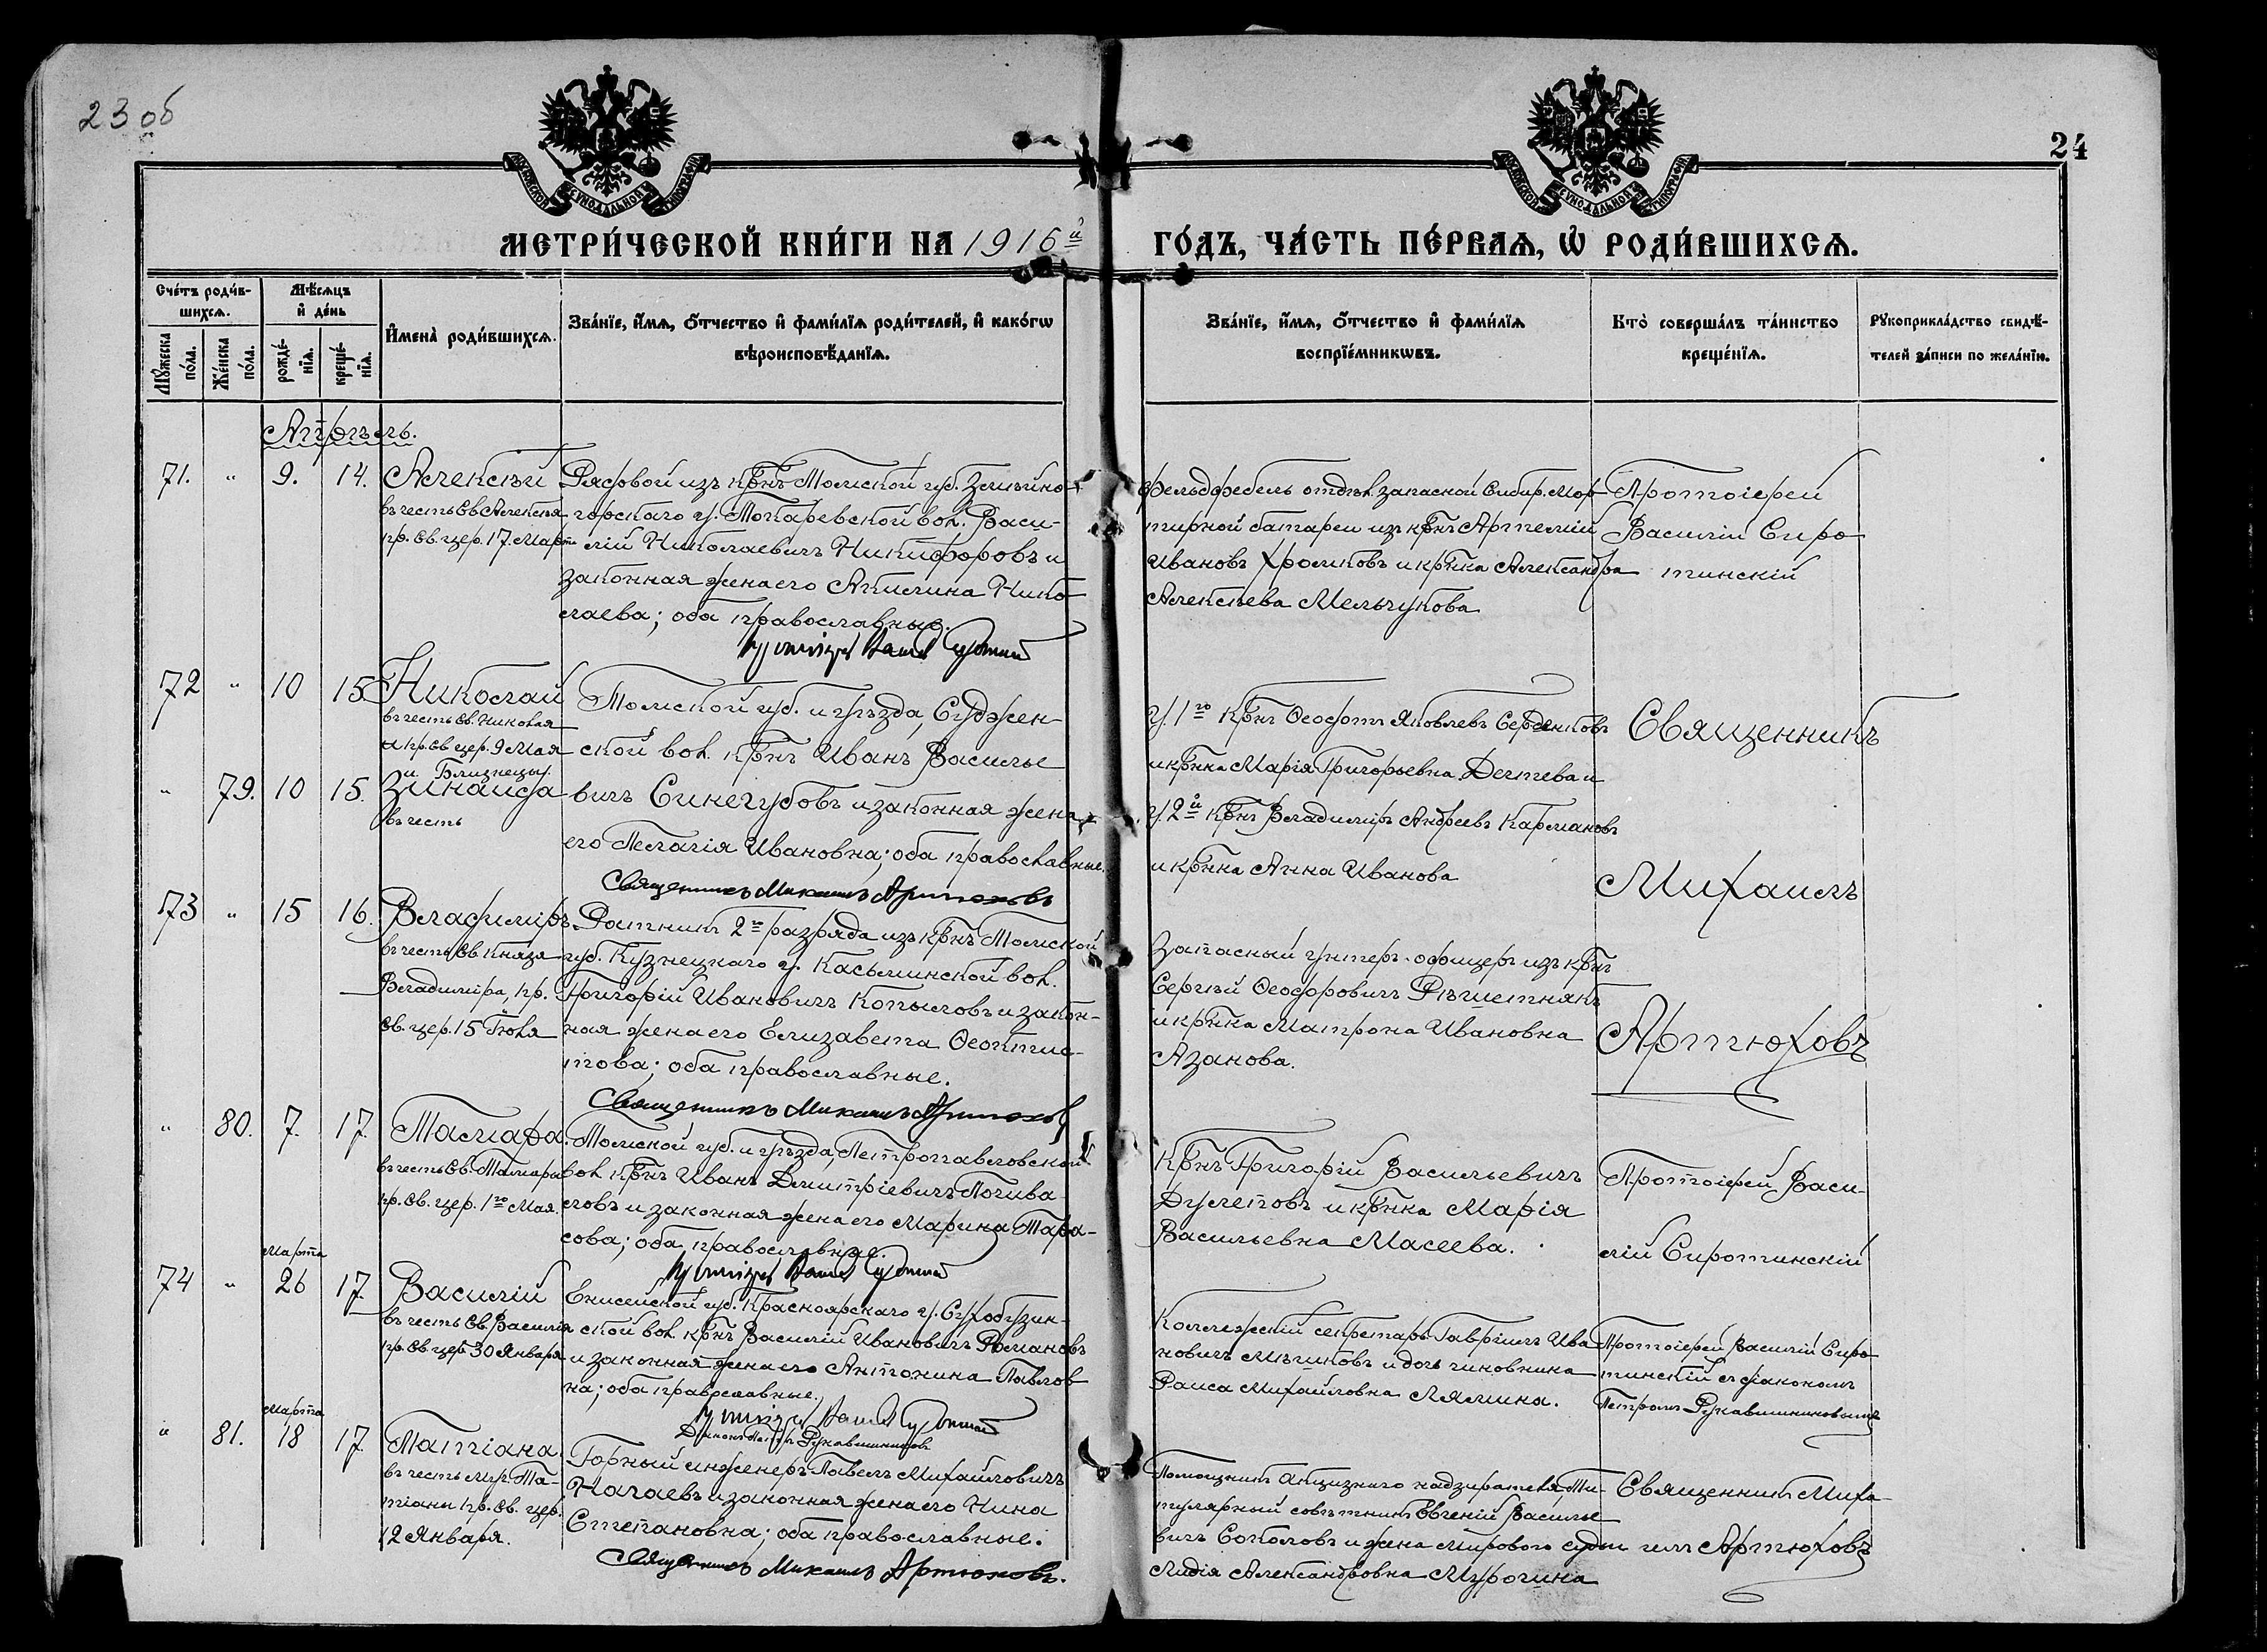 23 об
24
МЕТРИ́ЧЕСКОЙ КНИ́ГИ НА 1916й
ГО́ДЪ, ЧА́СТЬ ПЕ́РВАѦ, Ѡ РОДИ́ВШИХСѦ.
Сче́тъ роди́в-
шихсѧ.
Мѣ́сѧцъ
и де́нь
Мꙋжеска
по́ла.
Же́нска
по́ла.
рожде́-
нїѧ.
креще́-
нїѧ.
Имена̀ роди́вшихсѧ.
Зва́нїе, и́мѧ, ѻ́тчество и фами́лїѧ роди́телей, и како́гѡ
вѣроисповѣ́данїѧ.
Зва́нїе, и́мѧ, ѻ́тчество и фами́лїѧ
воспрїе́мникѡвъ.
Кто̀ соверша́лъ та́инство
креще́нїѧ.
Рꙋкоприкла́дство свидѣ́-
телей за́писи по жела́нїю.
Апрѣль.
71. " 9. 14. Алексѣй
въ честь Св Алексѣя
пр. Св. цер. 17. Марта
Рядовой изъ крнъ Томской губ. Змѣйно-
горскаго у. Покаревской вол. Васи-
лій Николаевичъ Никифоровъ и
законная жена его Акилина Нико-
лаева; оба православные.
фельдфебель отдѣл. запасной Сибир. Мор-
тирной батареи изъ крнъ Артемій
Ивановъ Хромковъ и крнка Александра
Алексѣева Мельчукова
Протоіерей
Василій Сиро-
тинскій
72 " 10 15 Николай
въ честь Св. Николая
пр. Св цер. 9 Мая
и Близнецы
" 79. 10 15. Зинаида
въ честь
Томской губ. и уѣзда, Суджен-
ской вол. крнъ Иванъ Василье-
вичъ Синегубовъ и законная жена
его Пелагія Ивановна; оба православные.
Священникъ Михаилъ Артюховъ
у 1го крнъ Ѳеофотъ Яковлевъ Серденковъ
и крнка Марія Григорьевна Дегтева и
у 2й крнъ Владиміръ Андреевъ Кармановъ
и крнка Анна Иванова
Священникъ
Михаилъ
Артюховъ
73 " 15 16. Владиміръ.
въ честь Св Князя
Владиміра, пр.
Св. цер. 15 Іюля
Ратникъ 2го разряда изъ крнъ Томской
губ. Кузнецкаго у. Касьминской вол.
Григорій Ивановичъ Копыловъ и закон-
ная жена его Елизавета Ѳеоктис-
това; оба православные.
Священникъ Михаилъ Артюховъ
Запасный унтеръ-офицеръ изъ крнъ
Сергѣй Ѳеодоровичъ Рѣшетнякъ
и крнка Матрона Ивановна
Азанова.
" 80. 7. 17. Тамара.
въ честь Св. Тамары
пр. Св. цер. 1го Мая.
Томской губ. и уѣзда, Петропавловской
вол крнъ Иванъ Димитріевичъ Почива-
ловъ и законная жена его Марина Тара-
сова; оба православные.
Крнъ Григорій Васильевичъ
Дулеповъ и крнка Марія
Васильевна Масеева.
Протоіерей Васи-
лій Сиротинскій
Марта
74 " 26 17. Василій
въ честь Св. Василія
пр. Св. цер 30 Января
Енисейской губ. Красноярскаго у. Сухобузин-
ской вол. крнъ Василій Ивановичъ Романовъ
и законная жена его Антонина Павлов-
на; оба православные.
Діаконъ Петръ Рукавишниковъ
Коллежскій секретарь Гавріилъ Ива-
новичъ Мѣшковъ и дочь чиновника
Раиса Михайловна Лямина.
Протоіерей Василій Сиро-
тинскій съ діакономъ
Петромъ Рукавишниковымъ
Марта
" 81. 18 17. Татіана.
въ честь муч. Та-
тіаны пр. Св. цер.
12 Января.
Горный инженеръ Павелъ Михайловичъ
Нагаевъ и законная жена его Нина
Степановна; оба православные.
Священникъ Михаилъ Артюховъ.
Помощникъ Акцизнаго надзирателя, Ти-
тулярный совѣтникъ Евгеній Василье-
вичъ Соколовъ и жена Мирового судьи
Лидія Александровна Мурогина
Священникъ Миха-
илъ Артюховъ